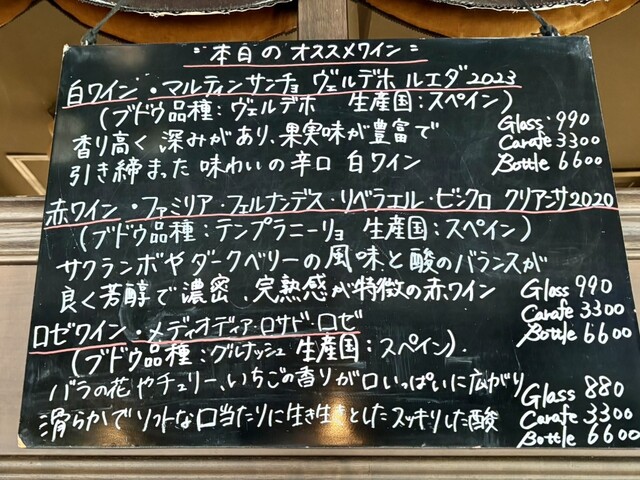 本日のオススメワイン
白ワイン・マルティンサンチョ ヴェルデホ ルエダ2023
(ブドウ品種:ヴェルデホ 生産国:スペイン)
香り高く 深みがあり、果実味が豊富で
引き締まった 味わいの辛口 白ワイン
Glass 990
Carafe 3300
Bottle 6600
赤ワイン・ファミリア・フェルナンデス・リベラエル・ビンクロ クリアンサ2020
(ブドウ品種:テンプラニーリョ 生産国:スペイン)
サクランボやダークベリーの風味と酸のバランスが
良く芳醇で濃密、完熟感が特徴の赤ワイン
Glass 990
Carafe 3300
Bottle 6600
ロゼワイン・メディオディア・ロサド・ロゼ
(ブドウ品種:グルナッシュ 生産国:スペイン).
バラの花やチェリー、いちごの香りが口いっぱいに広がり
滑らかでソフトな口当たりに生き生きとしたスッキリした酸
Glass 880
Carafe 3300
Bottle 6600